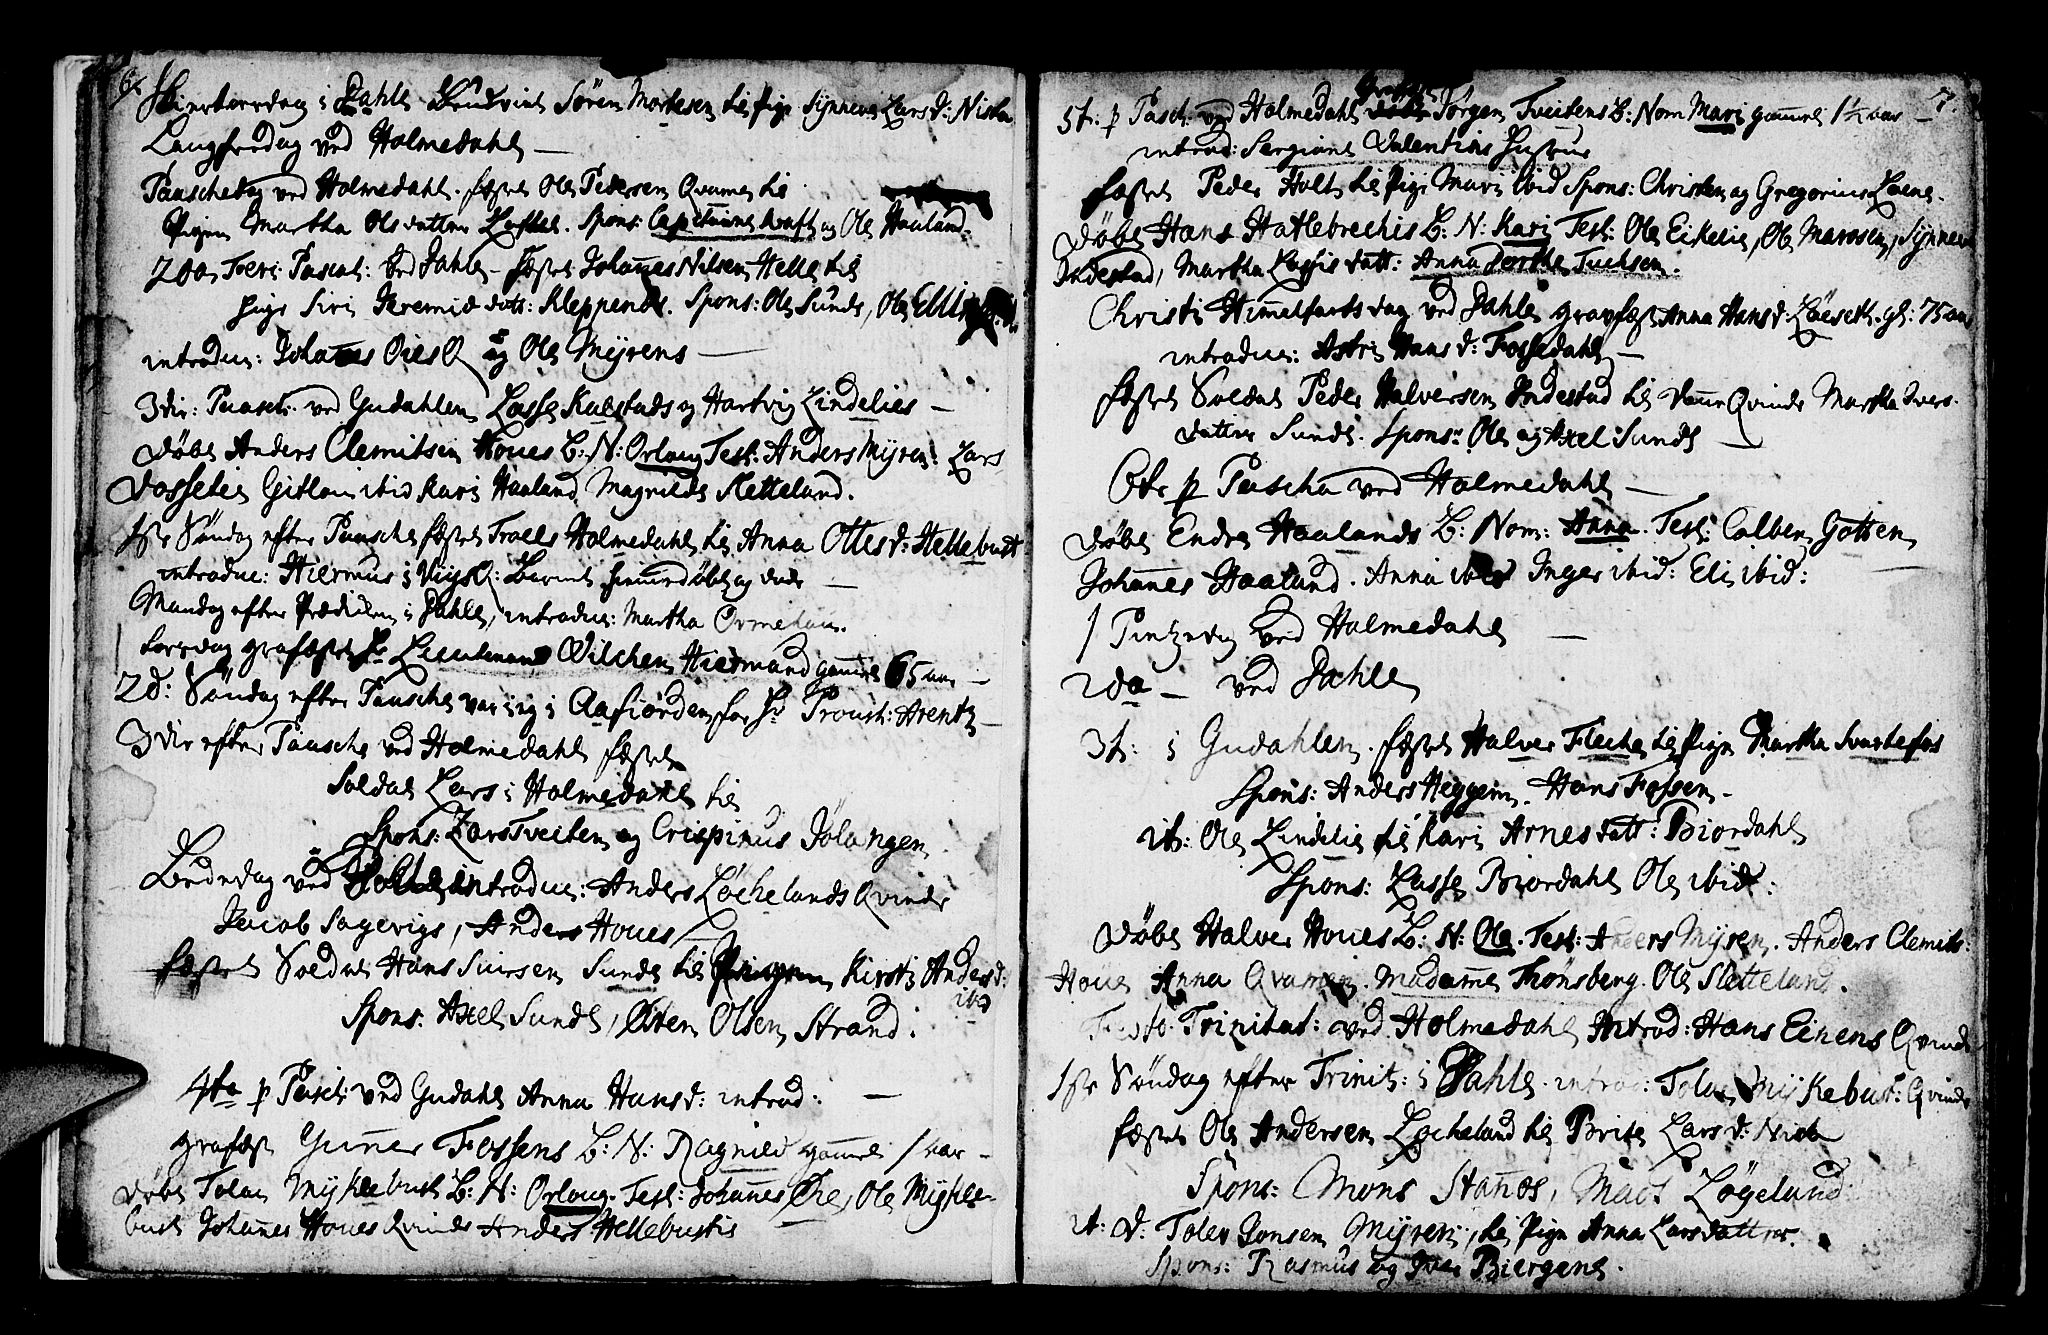 6.
Skiertorsdag i Dahle Sören Monsen til Pige Synneve Lars d: Nistn
Langfredag ved Holmedahl —
Paaschedag ved Holmedahl. fæstet Ole Pedersen Qvamen til
Pigen Martha Ols datter Spons: Capitaine Kraft og Ole Haaland.
2den Feri: Pascat: ved Dahle — fæstet Johannes Nilsen Helle til
Pige Siri Jeremiæ dots: Kleppenes. Spons: Ole Sunde, Ole
introduc: Johannes Öies Q og Ole Myrens —
3die: Paasch: ved Gudahlen Lasse Kalstads og Hartvig Lindelies —
döbt Anders Clemitsen Houes B: N: Orloug Test: Anders Myren: Lars
Dossetien Gitlou ibid Kari Haaland Magnilde Sletteland.
1ste Söndag efter Paasche fæstet Troels Holmedahl til Anna Ottes d: Hellebust
introduc: Hiermus i Viigs Q: Barnet hiemmedöbt og döde —
Mandag efter Prædiken i Dahle, introduc: Martha
Torsdag grafæstet Hr Lieutenant Vilchen Hiermand gammel 65 aar —
2d: Söndag efter Paasche var jeg i Aafiorden for Hr Proust: Arentz —
3die efter Paasche ved Holmedahl fæstet
Soldat Lars i Holmedahl til
Spons: Lars Tveiten og Crispinus Jölangen.
Bededag ved introduc: Anders Löchelands Qvinde
Jacob Sagevigs, Anders Houes
fæstet Soldat Hans Siursen Sunde til Pigen Kirsti Anders d:
ibid
Spons: Axel Sunde, Östen Olsen Strand.
4ta p Pasch: ved Gudahl Anna Hans d: introd: —
grafæst Gunner Fossens B: N: Ragnild gammel 1 aar —
döbt Tolav Myklebust B: N: Orloug. Test: Johannes Öie, Ole Mykle-
bust Johannes Houes Qvinde Anders Hellebustis
7.
Grafæst
5t: p Pasch: ved Holmedahl Jörgen Tveitens B: Nom Mari gammel 1½ aar —
introd: Sergiant Valentins Hustrue
fæstet Peder Holt til Pige Mari ibid Spons: Christen og Gregorius Loene.
döbt Hans Hatlebrechis B: N: Kari Test: Ole Eikelie, Ole Marosen, Synneve
Indestad, Martha Lassis datt: Anna Dorthe Tuchsen.
Christi Himmelfarts dag ved Dahle gravfæst Anna Hans d: Löeseth. gl: 75 aar
introduc: Astri Hans d: Fossedahl —
fæstet Soldat Peder Halversen Indestad til Danne Qvinde Martha Ivers
datter Sunde. Spons: Ole og Axel Sunde —
6te p Pascha ved Holmedahl —
döbt Endre Haalands B: Nom: Anna. Test: Colben Gotten
Johannes Haaland. Anna ibid Inger ibid: Eli ibid:
1 Pintzedag ved Holmedahl —
2da — ved Dahle
3t: i Gudahlen. fæstet Halver Fleche til Pigen Martha Svartefos
Spons: Anders Heggem. Hans Fossen —
it: Ole Lindelie til Kari Arnes datt: Biordahl
Spons: Lasse Biordahl Ole ibid:
döbt Halver Houes B: N: Ole. Test: Anders Myren, Anders Clemits:
Houe Anna Qvamen. Madame Thönsberg. Ole Sletteland.
Festo Trinitat: ved Holmedahl Introd: Hans Einens Qvinde
1ste Söndag efter Trinit: i Dahle. introd: Tolav Myklebust: Qvinde
fæstet Ole Andersen Locheland til Brite Lars d: Nistn
Spons: Mons Stanes, Mads Lögelund
it: D. Toley Jonsen Myren, til Pigen Anna Larsdatter.
Spons: Rasmus og Iver Biergene.